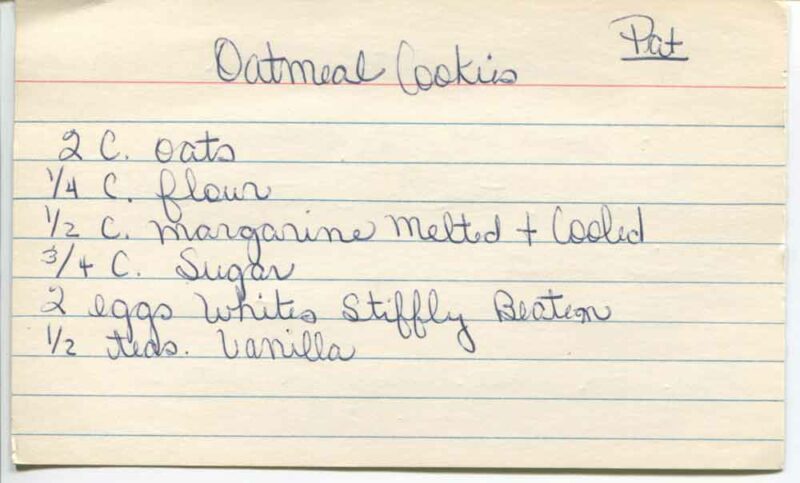 Pat
Oatmeal Cookies
2 C. oats
1/4 C. flour
1/2 C. margarine melted + Cooled
3/4 C. Sugar
2 eggs Whites Stiffly Beaten
1/2 teas. Vanilla